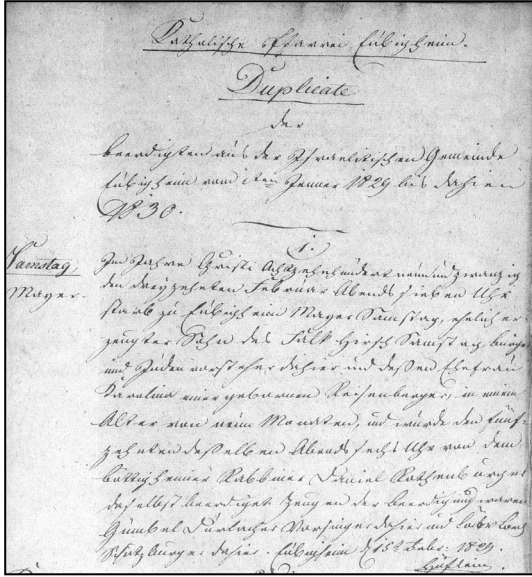 Katholische Pfarrei Eubigheim.
Duplicate
der
beerdigten aus der Israelitischen Gemeinde
Eubigheim vom 1ten Jenner 1829 bis dahin
1830.
1.
Samstag,
Mayer.
Im Jahre Christi Achtzehnhundert neunundzwanzig
den dreyzehnten Februar Abends sieben Uhr
starb zu Eubigheim Mayer Samstag, ehelich er-
zeugter Sohn des Falk Hirsch Samstag, Bürger
und Judenvorsteher dahier und dessen Ehefrau
Karolina einer gebornen Reisenberger, in einem
Alter von neun Monaten, und wurde den fünf-
zehnten desselben Abends sechs Uhr von dem
Rabbiner Daniel Rothenburger
daselbst beerdiget. Zeugen der beerdigung waren
Gumbel Durlacher Vorsinger dahier und Löb
dahier. Eubigheim d 15t Febr: 1829.